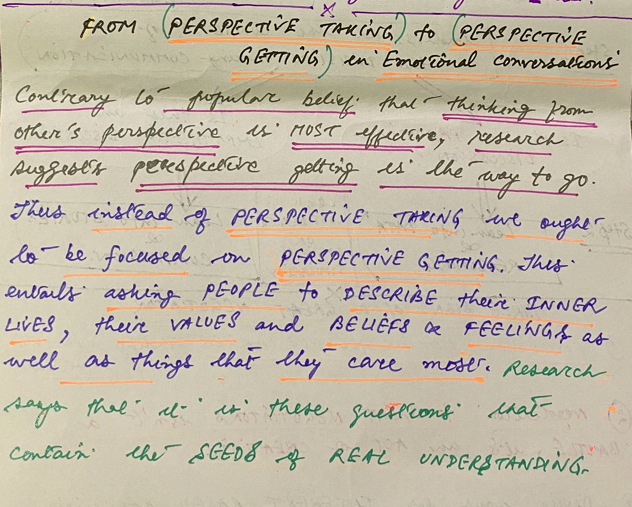 FROM (PERSPECTIVE TAKING) to (PERSPECTIVE
GETTING) in Emotional conversations
Contrary to popular belief that thinking from
other's perspective is MOST effective, research
suggests perspective getting is the way to go.
Thus instead of PERSPECTIVE TAKING we ought
to be focused on PERSPECTIVE GETTING. This
entails asking PEOPLE to DESCRIBE their INNER
LIVES, their VALUES and BELIEFS & FEELINGS as
well as things that they care most. Research
says that it is these questions that
contain the SEEDS of REAL UNDERSTANDING.